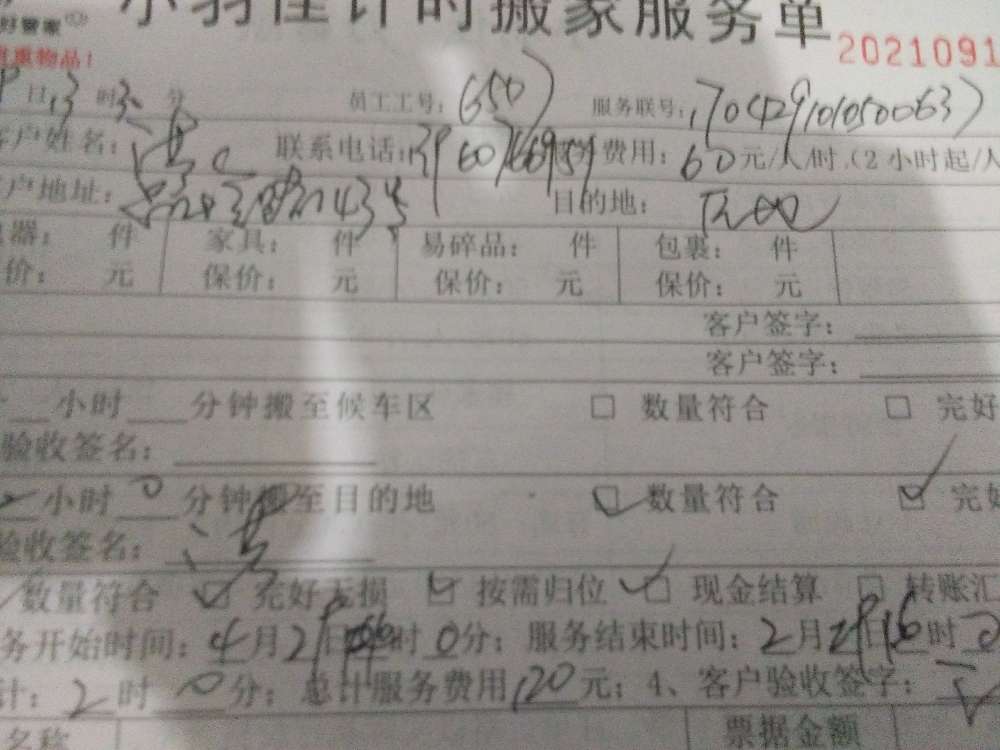 小羽佳计时搬家服务单
好管家
重物品！ 2021091
日13时30分 员工工号：(650) 服务联号：170429101050063)
客户姓名： 联系电话： 费用：60元/人/时.(2小时起/人
户地址： 目的地：
器： 件 家具： 件 易碎品： 件 包裹： 件
价： 元 保价： 元 保价： 元 保价： 元
客户签字：
客户签字：
小时 分钟搬至候车区 □ 数量符合 □ 完好
验收签名：
2小时0分钟搬至目的地 ☑ 数量符合 ☑ 完好
验收签名：
数量符合 ☑ 完好无损 ☑ 按需归位 ☑ 现金结算 □ 转账汇
务开始时间：4月29日 时0分；服务结束时间：2月29日16时0
计：2时0分；总计服务费用120元；4、客户验收签字：
名称 票据金额